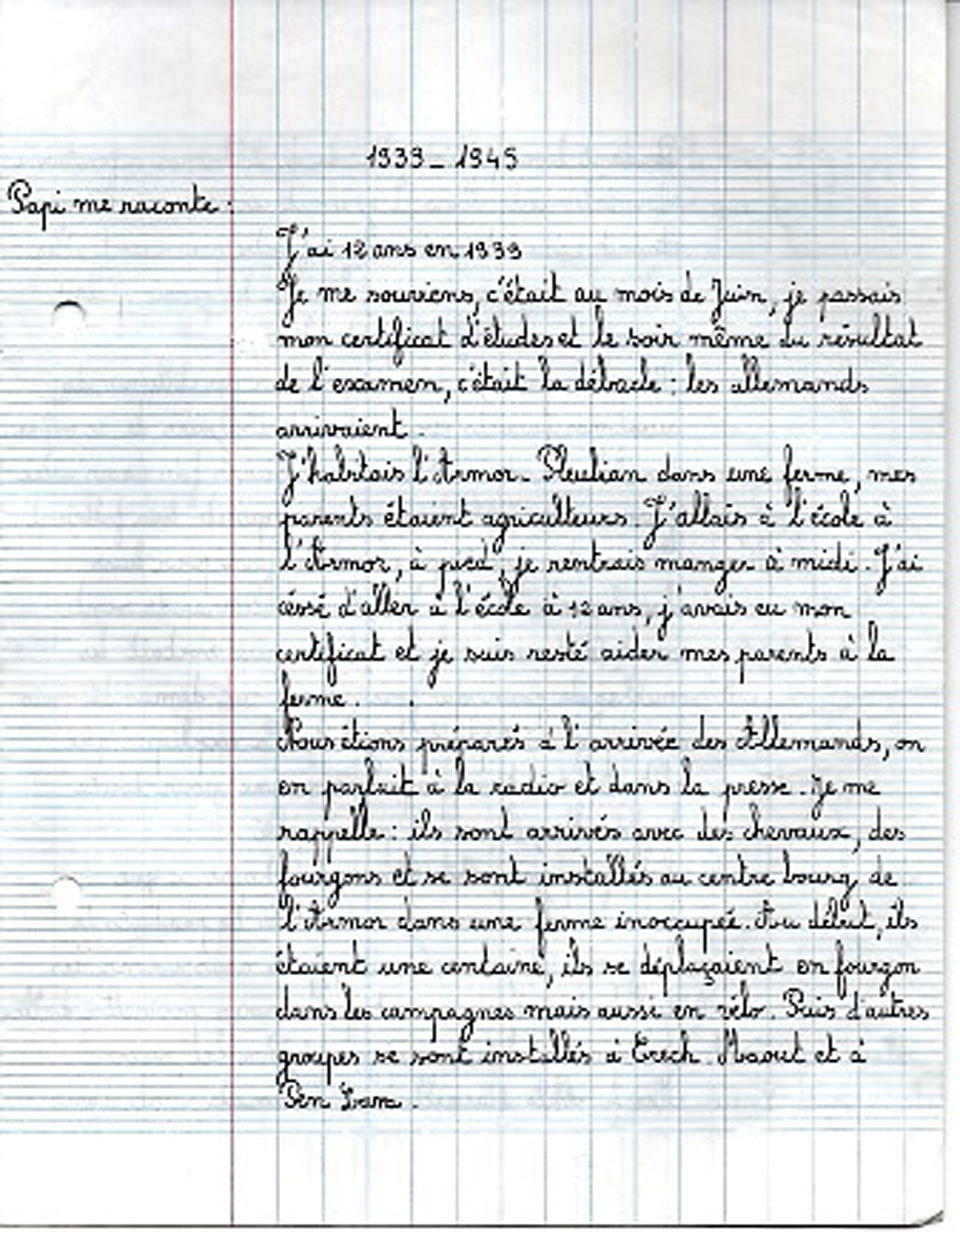 1939 - 1945
Papi me raconte :
J'ai 12 ans en 1939
Je me souviens, c'était au mois de Juin, je passais
mon certificat d'études et le soir même du résultat
de l'examen, c'était la débacle : les allemands
arrivaient.
J'habitais l'Armor - Pleubian dans une ferme, mes
parents étaient agriculteurs. J'allais à l'école à
l'Armor, à pied, je rentrais manger à midi. J'ai
cessé d'aller à l'école à 12 ans, j'avais eu mon
certificat et je suis resté aider mes parents à la
ferme.
Nous étions préparés à l'arrivée des Allemands, on
en parlait à la radio et dans la presse. Je me
rappelle : ils sont arrivés avec des chevaux, des
fourgons et se sont installés au centre bourg de
l'Armor dans une ferme inoccupée. Au début, ils
étaient une centaine, ils se déplaçaient en fourgon
dans les campagnes mais aussi en vélo. Puis d'autres
groupes se sont installés à Crech Maout et à
Pen Lann.